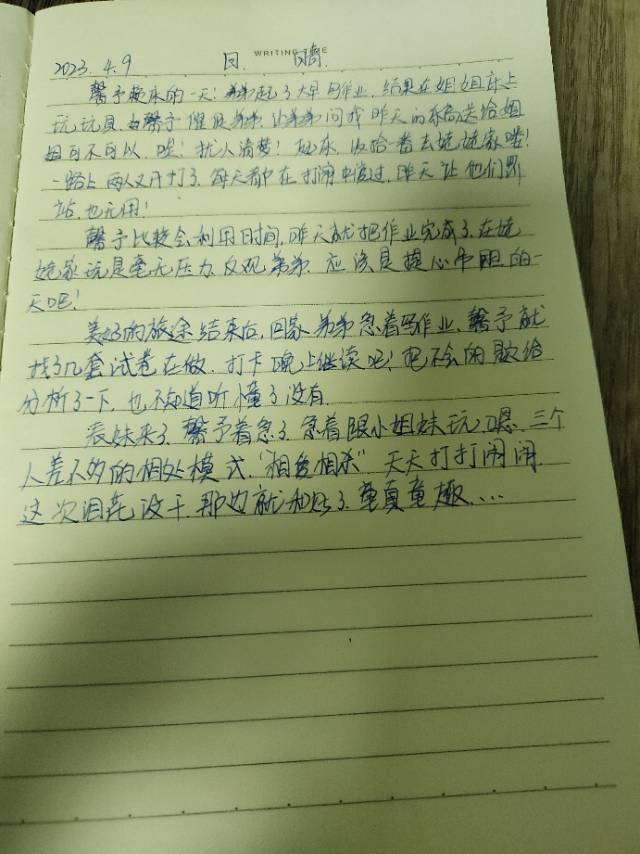 WRITING TIME
2023.4.9 日. 晴.
馨予赖床的一天! 弟弟起了大早写作业, 结果在姐姐床上
玩玩具, 馨予催促弟弟, 让弟弟问我昨天的东西送给姐
姐可不可以, 哇! 扰人清梦! 起床, 收拾一番去姥姥家喽!
一路上两人又开打了, 每天都在打闹中度过, 昨天让他们罚
站, 也无用!
馨予比较会利用时间, 昨天就把作业完成了, 在姥
姥家玩是毫无压力, 反观弟弟, 应该是提心吊胆的一
天吧!
美好的旅途结束后, 回家弟弟急着写作业, 馨予就
找了几套试卷在做, 打卡晚上继续吧! 把不会的题给
分析了一下, 也不知道听懂了没有.
表妹来了, 馨予着急了, 急着跟小姐妹玩, 嗯, 三个
人差不多的相处模式, "相爱相杀" 天天打打闹闹
这次泪花没干, 那边就和好了, 童真童趣....